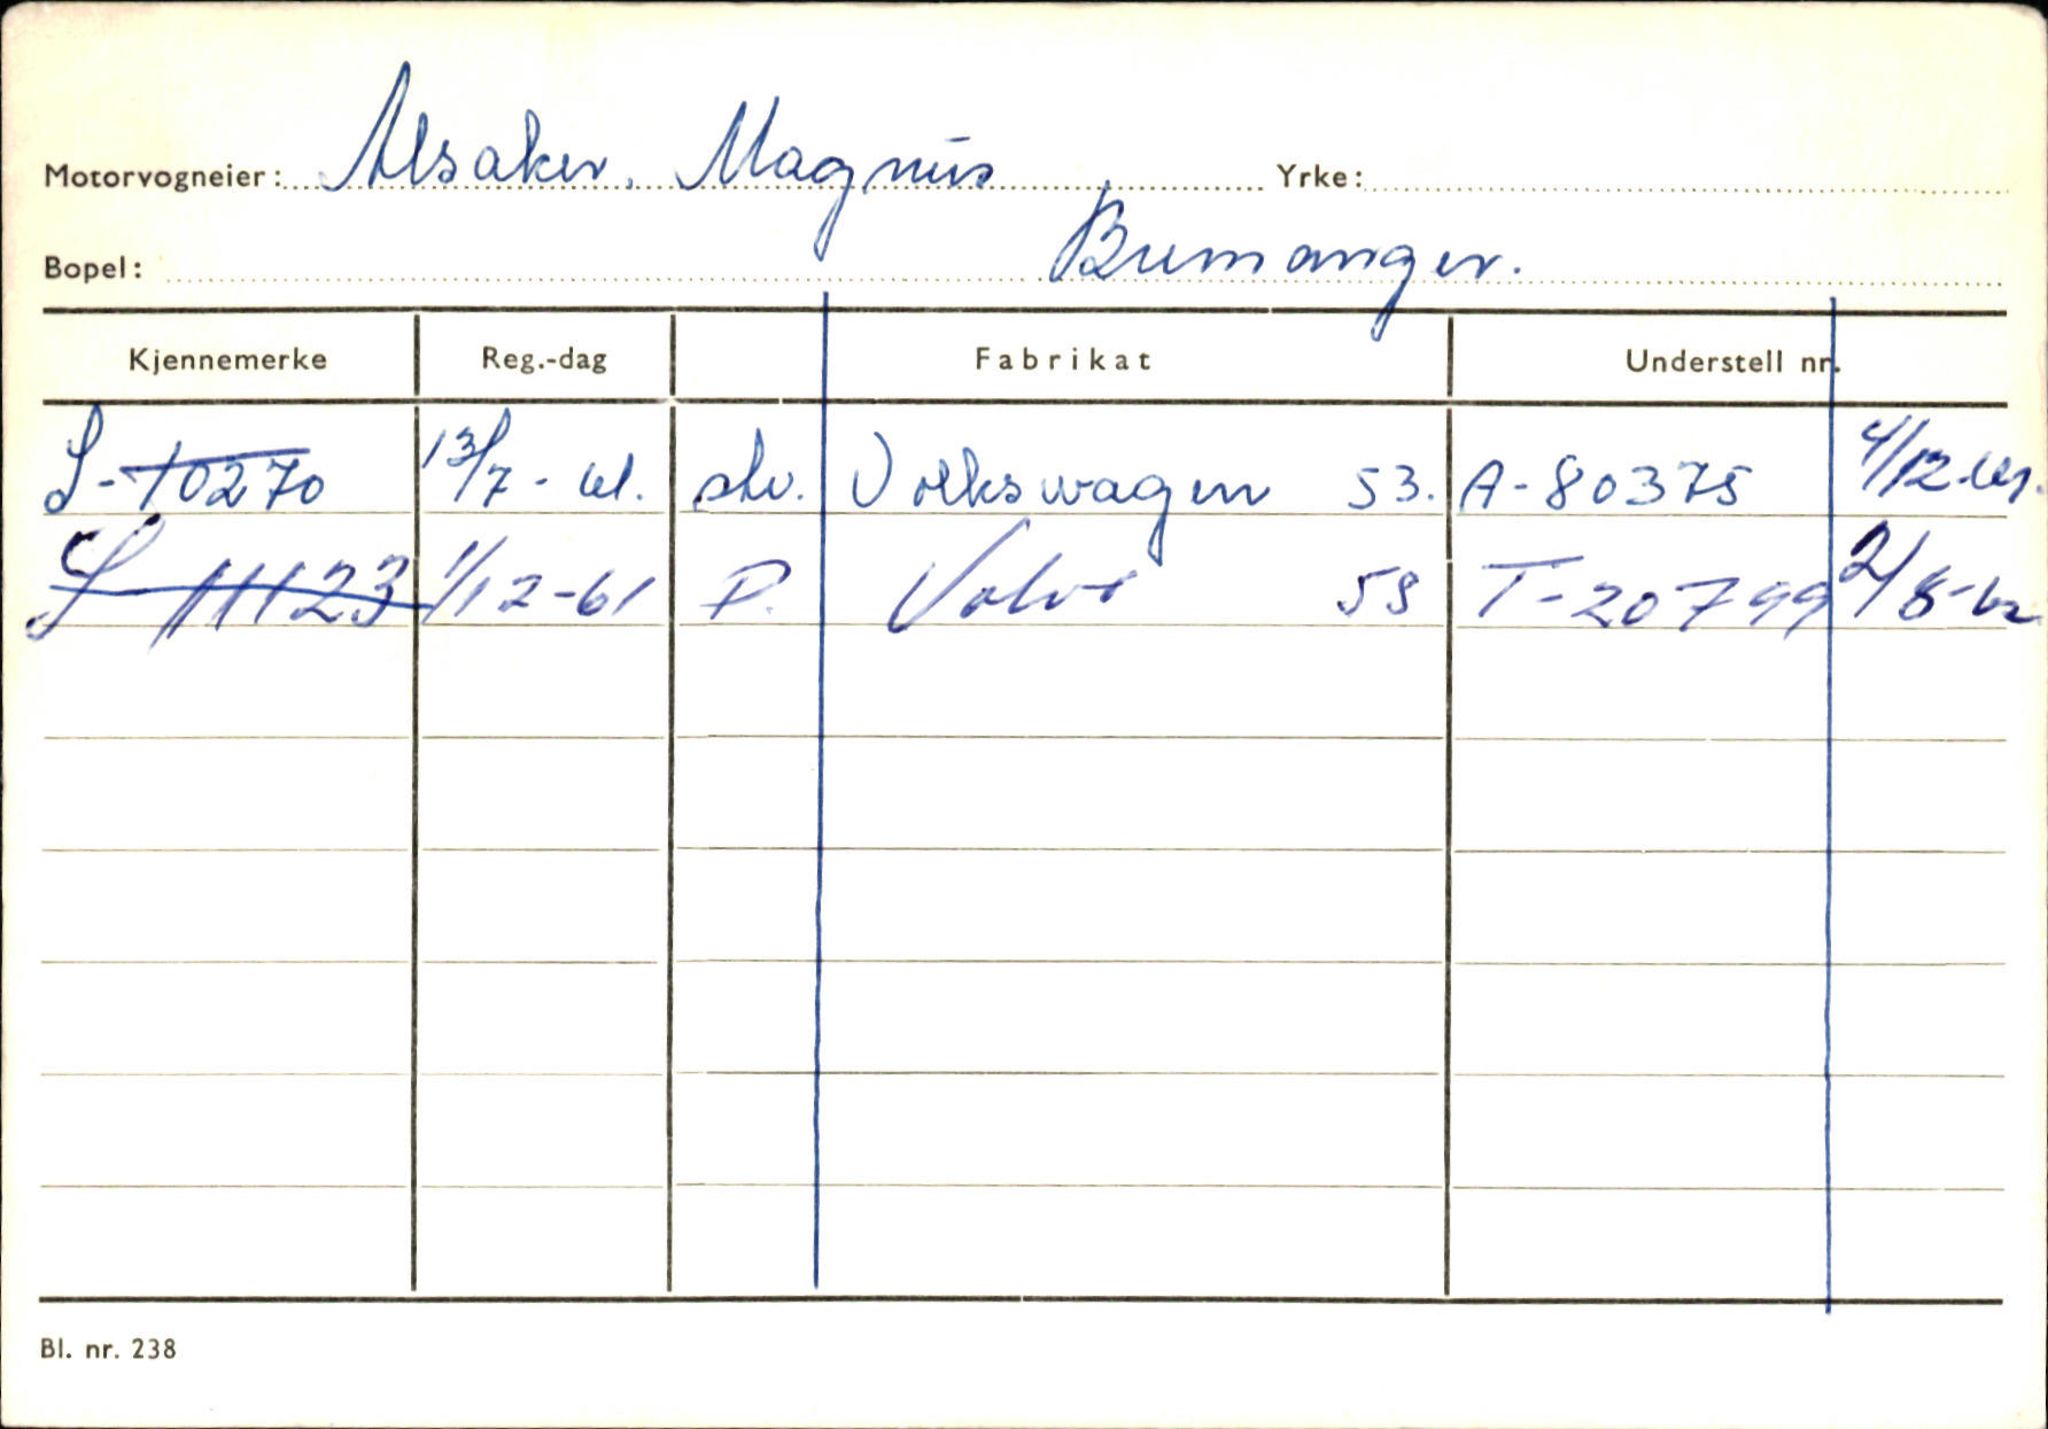 Motorvogneier: Alsaker, Magnus Yrke:
Bopel: Bremanger.
Kjennemerke Reg.-dag Fabrikat Understell nr.
S-10270 13/7-61. stv. Volkswagen 53. A-80375 4/12-61.
S 11123 1/12-61 P. Volvo 58 T-20799 2/8-62
Bl. nr. 238